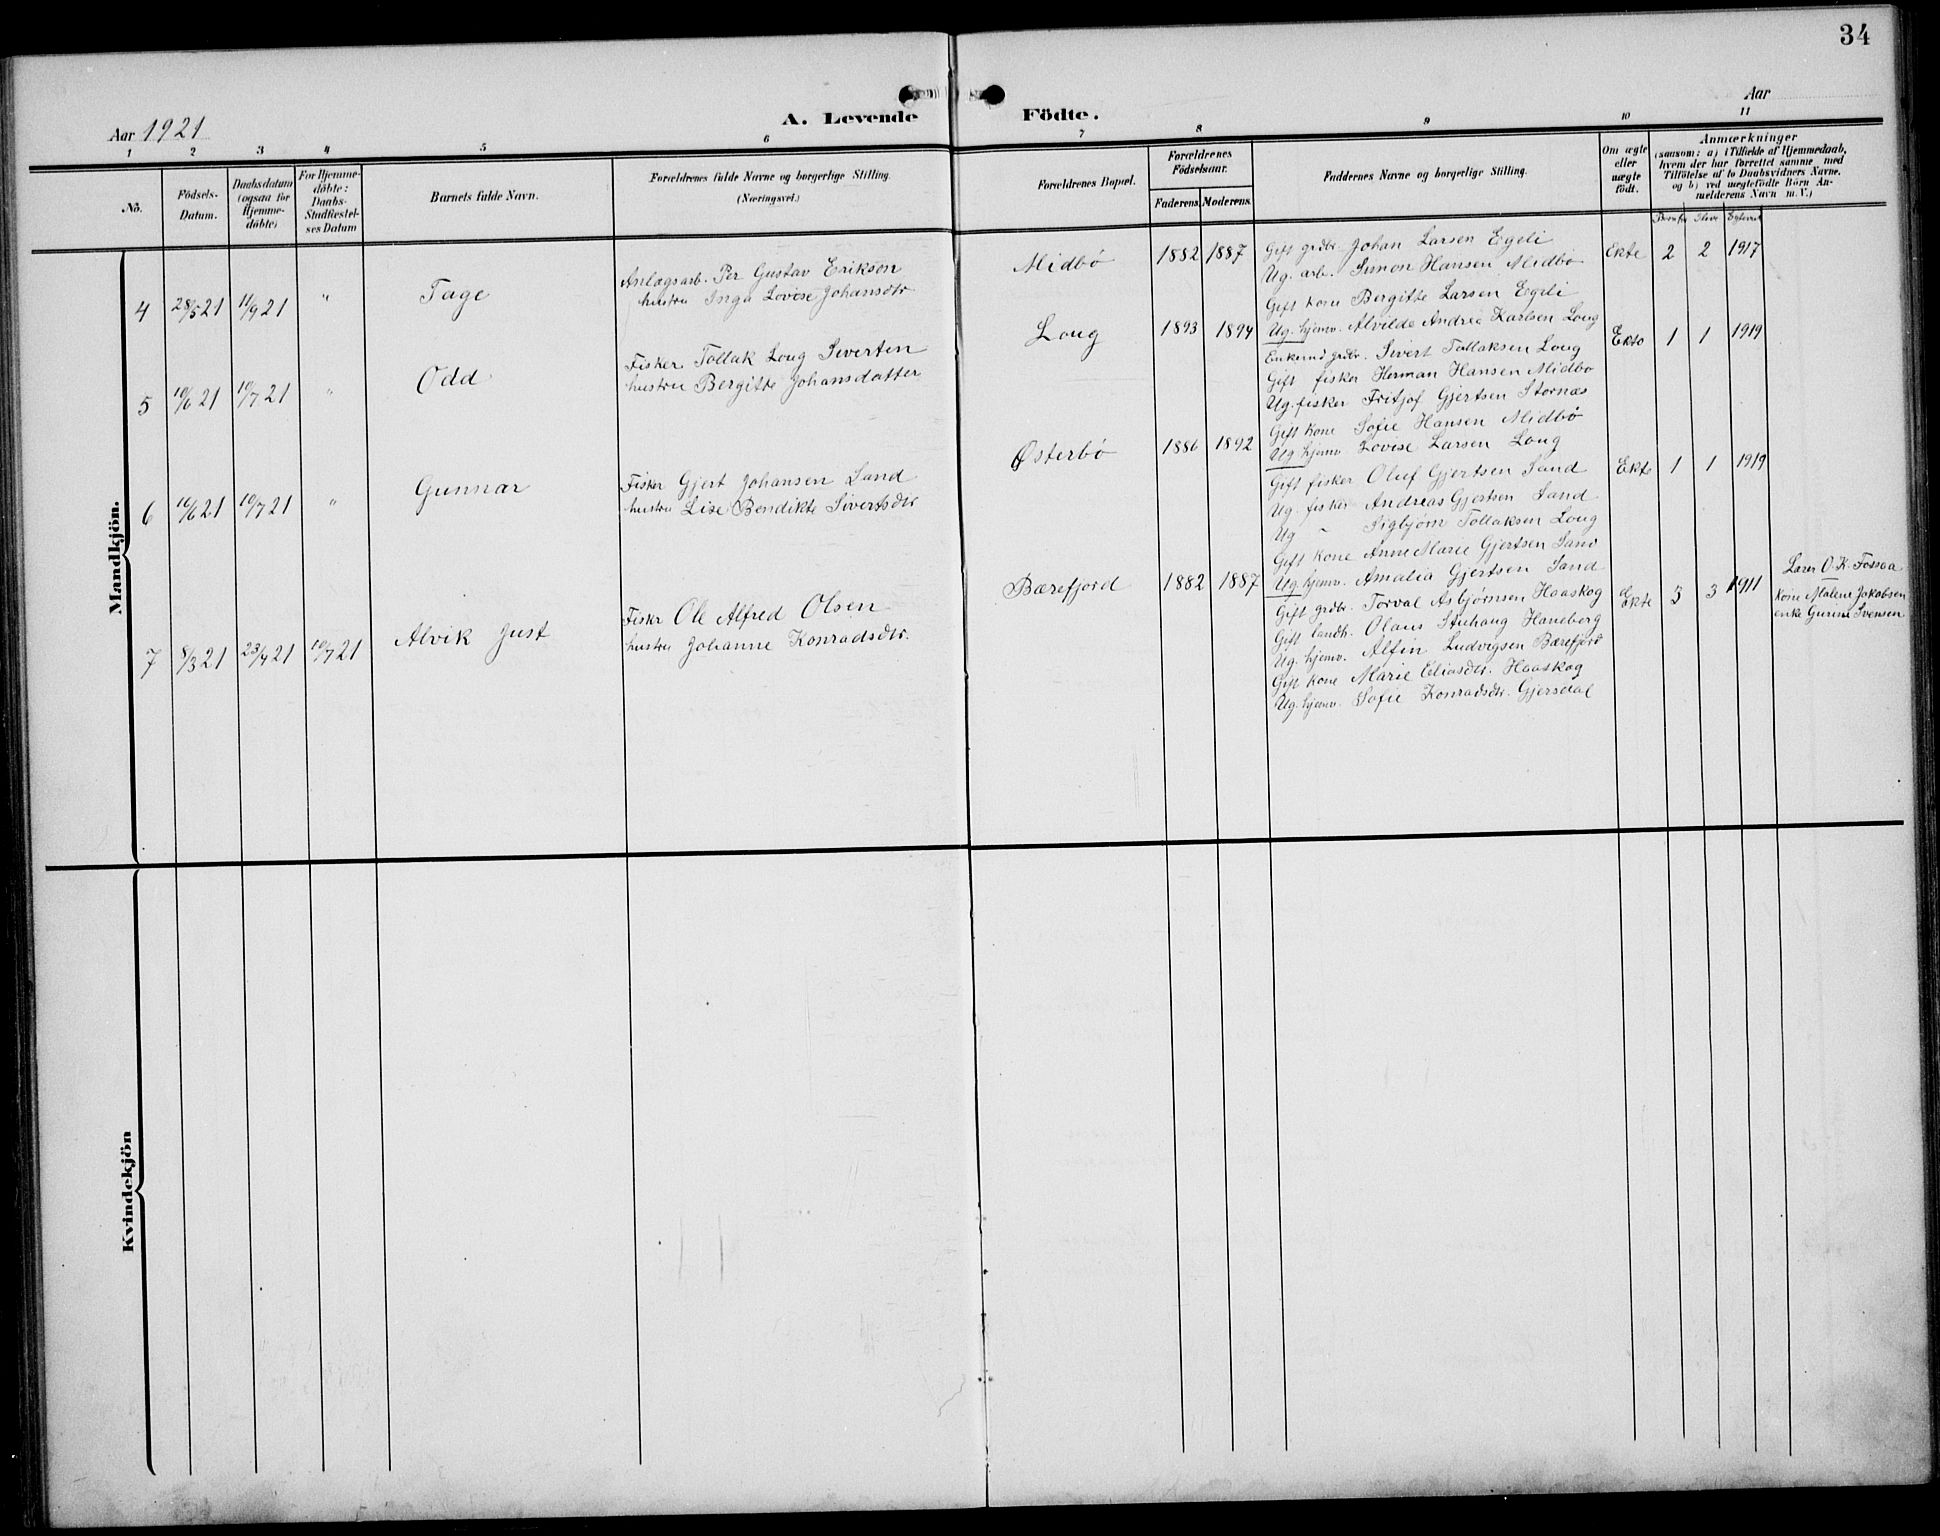 34
Aar 1921
A. Levende Födte.
Aar
1 2 3 4 5 6 7 8 9 10 11
No.
Födsels-Datum.
Daabsdatum (ogsaa for Hjemme-döbte)
For Hjemme-döbte: Daabs-Stadfæstel-ses Datum
Barnets fulde Navn.
Forældrenes fulde Navne og borgerlige Stilling.
(Næringsvei.)
Forældrenes Bopæl.
Forældrenes Födselsaar.
Faderens. Moderens.
Faddernes Navne og borgerlige Stilling.
Om ægte eller uægte födt.
Anmærkninger
(saasom: a) i Tilfælde af Hjemmedaab,
hvem der har forrettet samme, med
Tilföielse af to Daabsvidners Navne,
og b) ved uægtefödte Börn An-
melderens Navn m.V.)
Mandkjön.
4 28/5 21 11/9 21 " Tage
Anlægsarb. Per Gustav Erikson
hustru Inga Lovise Johansdtr
Midbø 1882 1887
Gift grdbr. Johan Larsen Egeli
Ug. arb. Simon Hansen Midbø
Gift kone Bergitte Larsen Egeli
Ug. hjemv. Alvilde Andrea Karlsen Loug
Ekte 2 2 1917
5 10/6 21 10/7 21 " Odd
Fisker Tollak Loug Siverten
hustru Bergitte Johansdatter
Loug 1893 1894
Enkemd grdbr. Sivert Tollaksen Loug
Gift fisker Herman Hansen Midbø
Ug. fisker Fritjof Gjertsen Stornæs
Gift kone Sofie Hansen Midbø
Ug. hjemv Lovise Larsen Loug
Ekte 1 1 1919
6 16/6 21 10/7 21 " Gunnar
Fisker Gjert Johansen Sand
hustru Lise Bendikte Sivertsdtr
Østerbø 1886 1892
Gift fisker Oluf Gjertsen Sand
Ug. fisker Andreas Gjertsen Sand
Ug " Sigbjørn Tollaksen Loug
Gift kone Anne Marie Gjertsen Sand
Ug. hjemv. Amalia Gjertsen Sand
Ekte 1 1 1919
7 8/3 21 23/4 21 10/7 21 Alvik Just
Fisker Ole Alfred Olsen
hustru Johanne Konradsdtr.
Bærefjord 1882 1887
Gift grdbr. Torval Asbjørnsen Haaskog
Gift landh. Olaus Stuhaug Haneberg
Ug. hjemv. Alfin Ludvigsen Bærefjord
Gift kone Marie Eliasdtr. Haaskog
Ug. hjemv. Sofie Konradsdtr. Gjersdal
Ekte 3 3 1911
Lærer O. K. Fossaa
kone Malene Jakobsen
enke Gurine Svensen
Kvindekjön